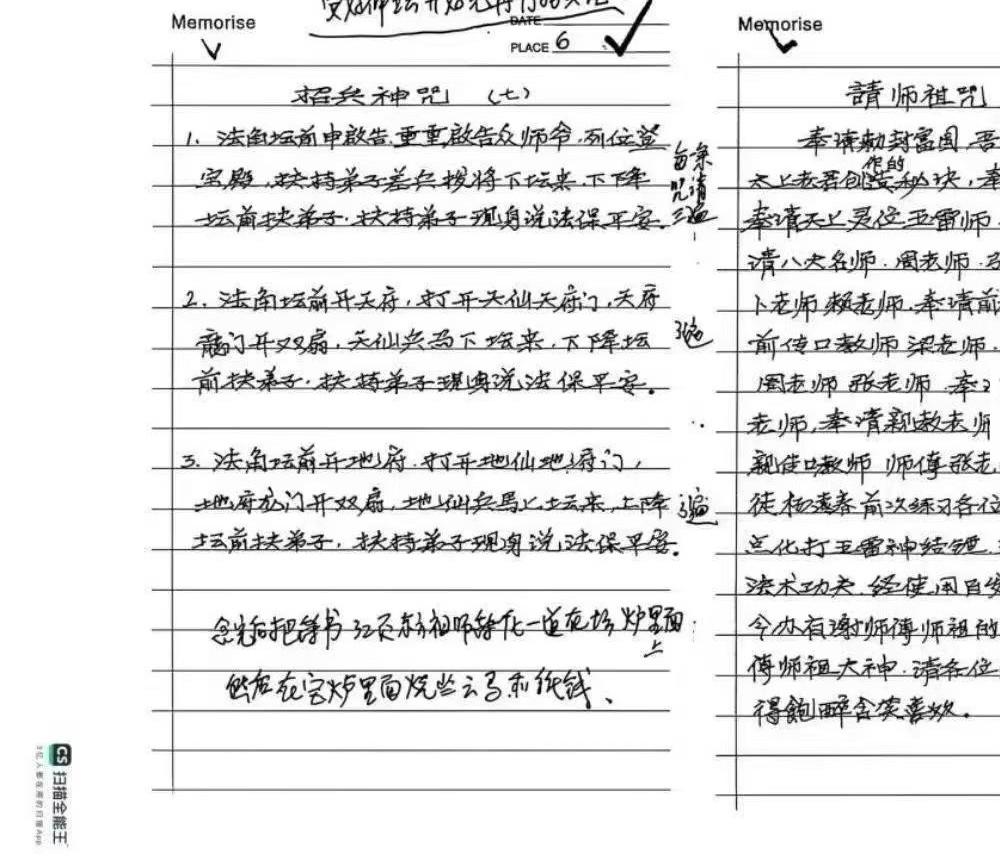 Memorise
DATE
PLACE 6
招兵神咒 (七)
1. 法角坛前申啟告,重重啟告众师爷.列位登
宝殿,扶持弟子差兵拨将下坛来.下降
坛前扶弟子.扶持弟子现身说法保平安.
每条
咒请
三遍
2. 法角坛前开天府,打开天仙天府门,天府
门开双扇,天仙兵马下坛来,下降坛
前扶弟子.扶持弟子现身说法保平安。
3遍
3. 法角坛前开地府.打开地仙地府门,
地府龙门开双扇,地仙兵馬上坛来,上降
坛前扶弟子,扶持弟子现身说法保平安。
3遍
念完后把 书32页 祖师 化一道在坛炉里面
上
然后在宝炉里面烧些云马和纸钱、
Memorise
請师祖咒
奉请勅封富国,吾
作的
太上老君创造秘块,奉
奉请天上灵位五雷师.
请八大名师.周老师.
卜老师赖老师.奉请前
前传口教师梁老师.
周老师張老师.奉
老师,奉请親教老师
親传口教师 师傅張老
徒 前次练习各位
点化打五雷神结
法术功夫.经使用自
今办有谢师傅师祖的
傅师祖大神.请各位
得飽醉含笑喜欢。
CS 扫描全能王
3亿人都在用的扫描App